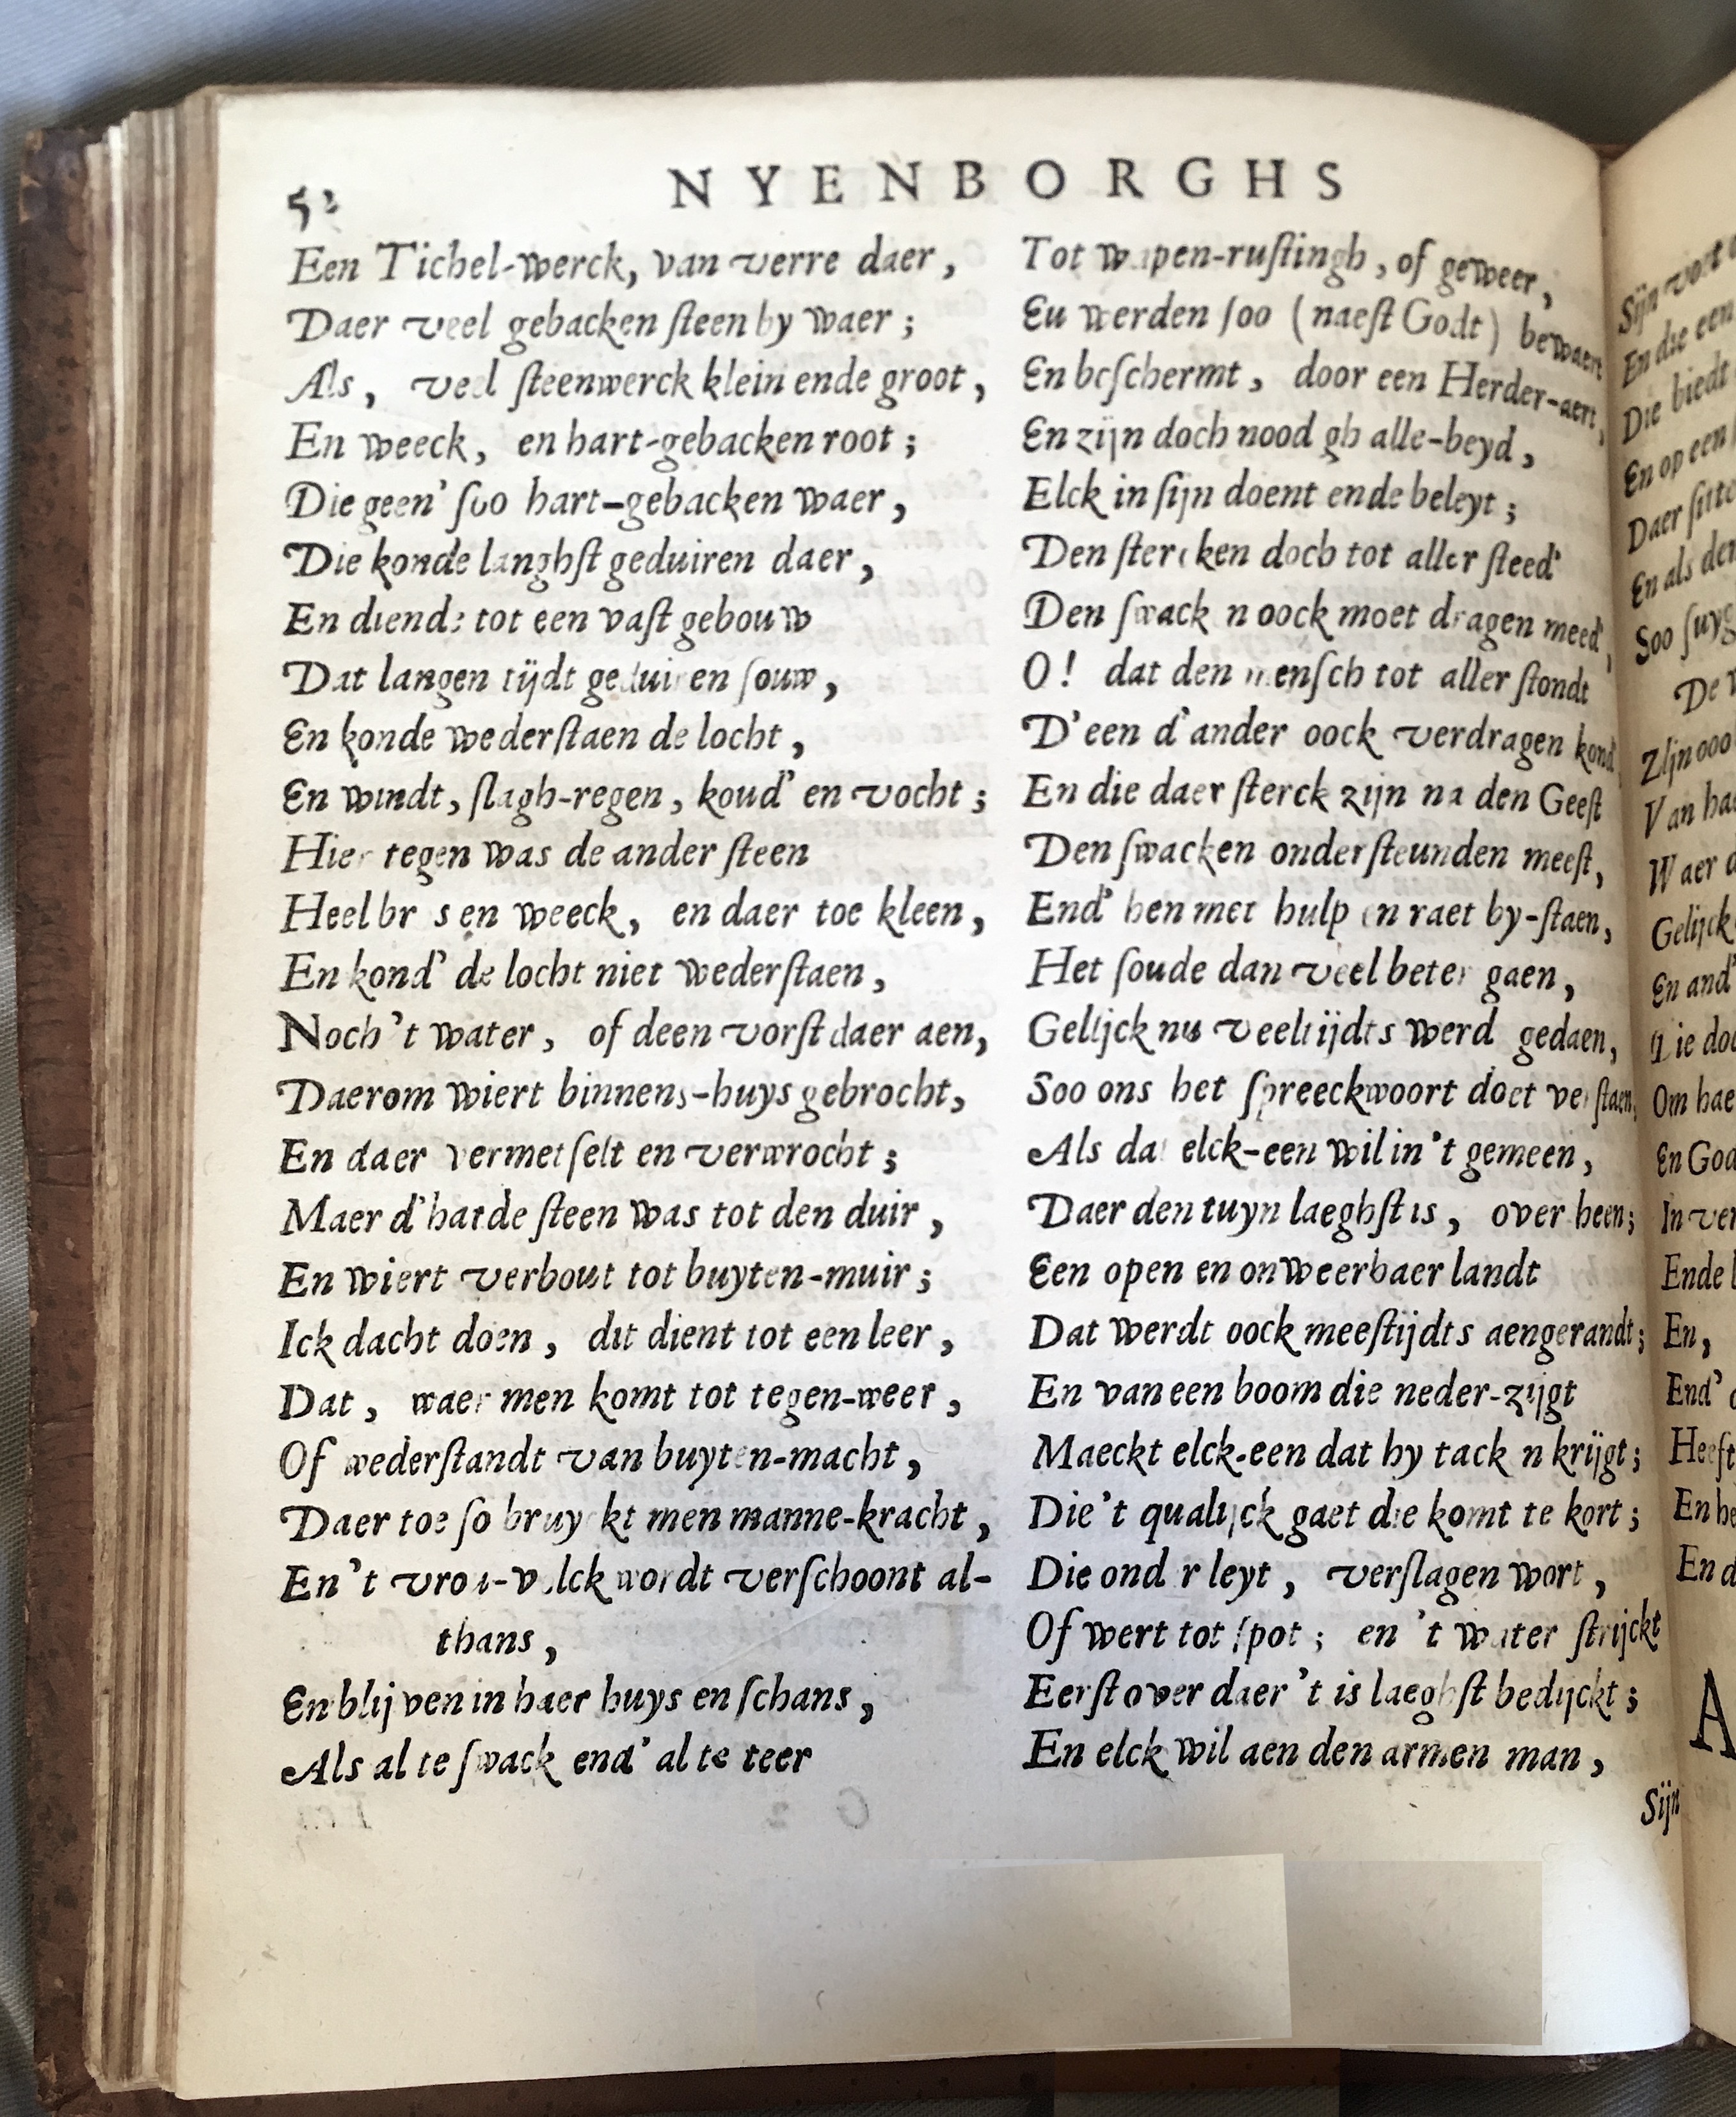 52
NYENBORGHS
Een Tichel-werck, van verre daer,
Daer veel gebacken ſteen by waer;
Als, veel ſteenwerck klein ende groot,
En weeck, en hart-gebacken root;
Die geen' ſoo hart-gebacken waer,
Die konde langhſt geduiren daer,
En diende tot een vaſt gebouw
Dat langen tijdt geduiren ſouw,
En konde wederſtaen de locht,
En windt, ſlagh-regen, koud' en vocht;
Hier tegen was de ander ſteen
Heel br s en weeck, en daer toe kleen,
En kond' de locht niet wederſtaen,
Noch 't water, of deen vorſt daer aen,
Daerom wiert binnens-huys gebrocht,
En daer vermetſelt en verwrocht;
Maer d' harde ſteen was tot den duir,
En wiert verbout tot buyten-muir;
Ick dacht doen, dit dient tot een leer,
Dat, waer men komt tot tegen-weer,
Of wederſtandt van buyten-macht,
Daer toe ſo bruyckt men manne-kracht,
En 't vrou-volck wordt verſchoont al-
thans,
En blijven in haer huys en ſchans,
Als al te ſwack end' al te teer
Tot wapen-ruſtingh, of geweer,
Eu werden ſoo (naeſt Godt) bewaert
En beſchermt, door een Herder-aert,
En zijn doch noodigh alle-beyd,
Elck in ſijn doent ende beleyt;
Den ſtercken doch tot aller ſteed'
Den ſwacken oock moet dragen meed',
O! dat den menſch tot aller ſtondt
D'een d'ander oock verdragen kond,
En die daer ſterck zijn na den Geeſt
Den ſwacken onderſteunden meeſt,
End' hen met hulp en raet by-ſtaen,
Het ſoude dan veel beter gaen,
Gelijck nu veeltijdts werd gedaen,
Soo ons het ſpreeckwoort doet verſtaen,
Als dat elck-een wil in 't gemeen,
Daer den tuyn laeghſt is, over heen;
Een open en onweerbaer landt
Dat werdt oock meeſtijdts aengerandt;
En van een boom die neder-zijgt
Maeckt elck-een dat hy tacken krijgt;
Die 't qualijck gaet die komt te kort;
Die onder leyt, verſlagen wort,
Of wert tot ſpot; en 't water ſtrijckt
Eerſt over daer 't is laeghſt bedijckt;
En elck wil aen den armen man,
Sijn